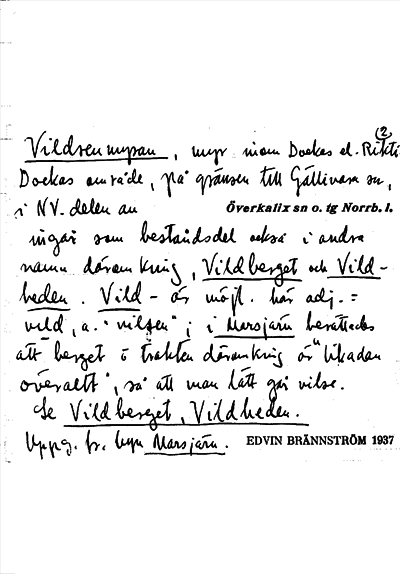 (2
Vildrenmyran, myr inom Dockas el. Rikti
Dockas område, på gränsen till Gällivare sn,
i NV. delen av Överkalix sn o. tg Norrb. l.
ingår som beståndsdel också i andra
namn däromkring, Vildberget och Vild-
heden. Vild- är möjl. här adj. =
vild, a. "vilsen"; i Marsjärn berättades
att berget o trakten däromkring är "likadan
överallt", så att man lätt går vilse.
Se Vildberget, Vildheden.
Uppg. fr. byn Marsjärn. EDVIN BRÄNNSTRÖM 1937